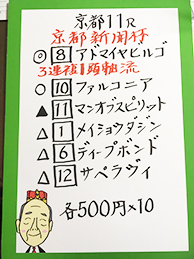 京都11R
京都新聞杯
◎ 8 アドマイヤビルゴ
3連複1頭軸流
○ 10 ファルコニア
▲ 11 マンオブスピリット
△ 1 メイショウダジン
△ 6 ディープボンド
△ 12 サペラヴィ
各500円×10